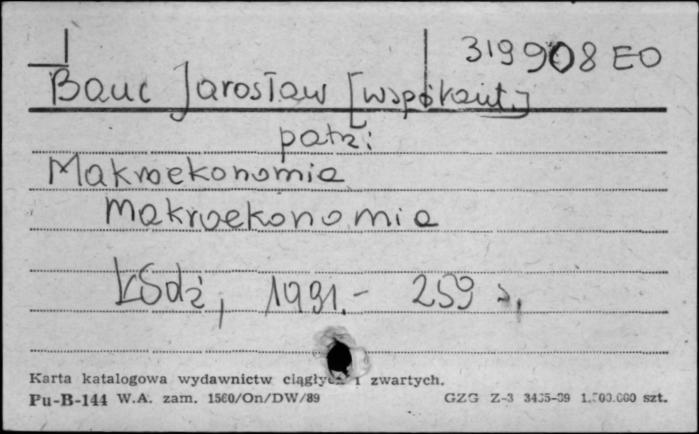 319908 EO
Bauc Jarosław [współaut.]
patrz:
Makroekonomia
Makroekonomia
Łódź, 1991.- 259 s.
Karta katalogowa wydawnictw ciągłych i zwartych.
Pu-B-144 W.A. zam. 1560/On/DW/89 GZG Z-3 3435-89 1.500.000 szt.